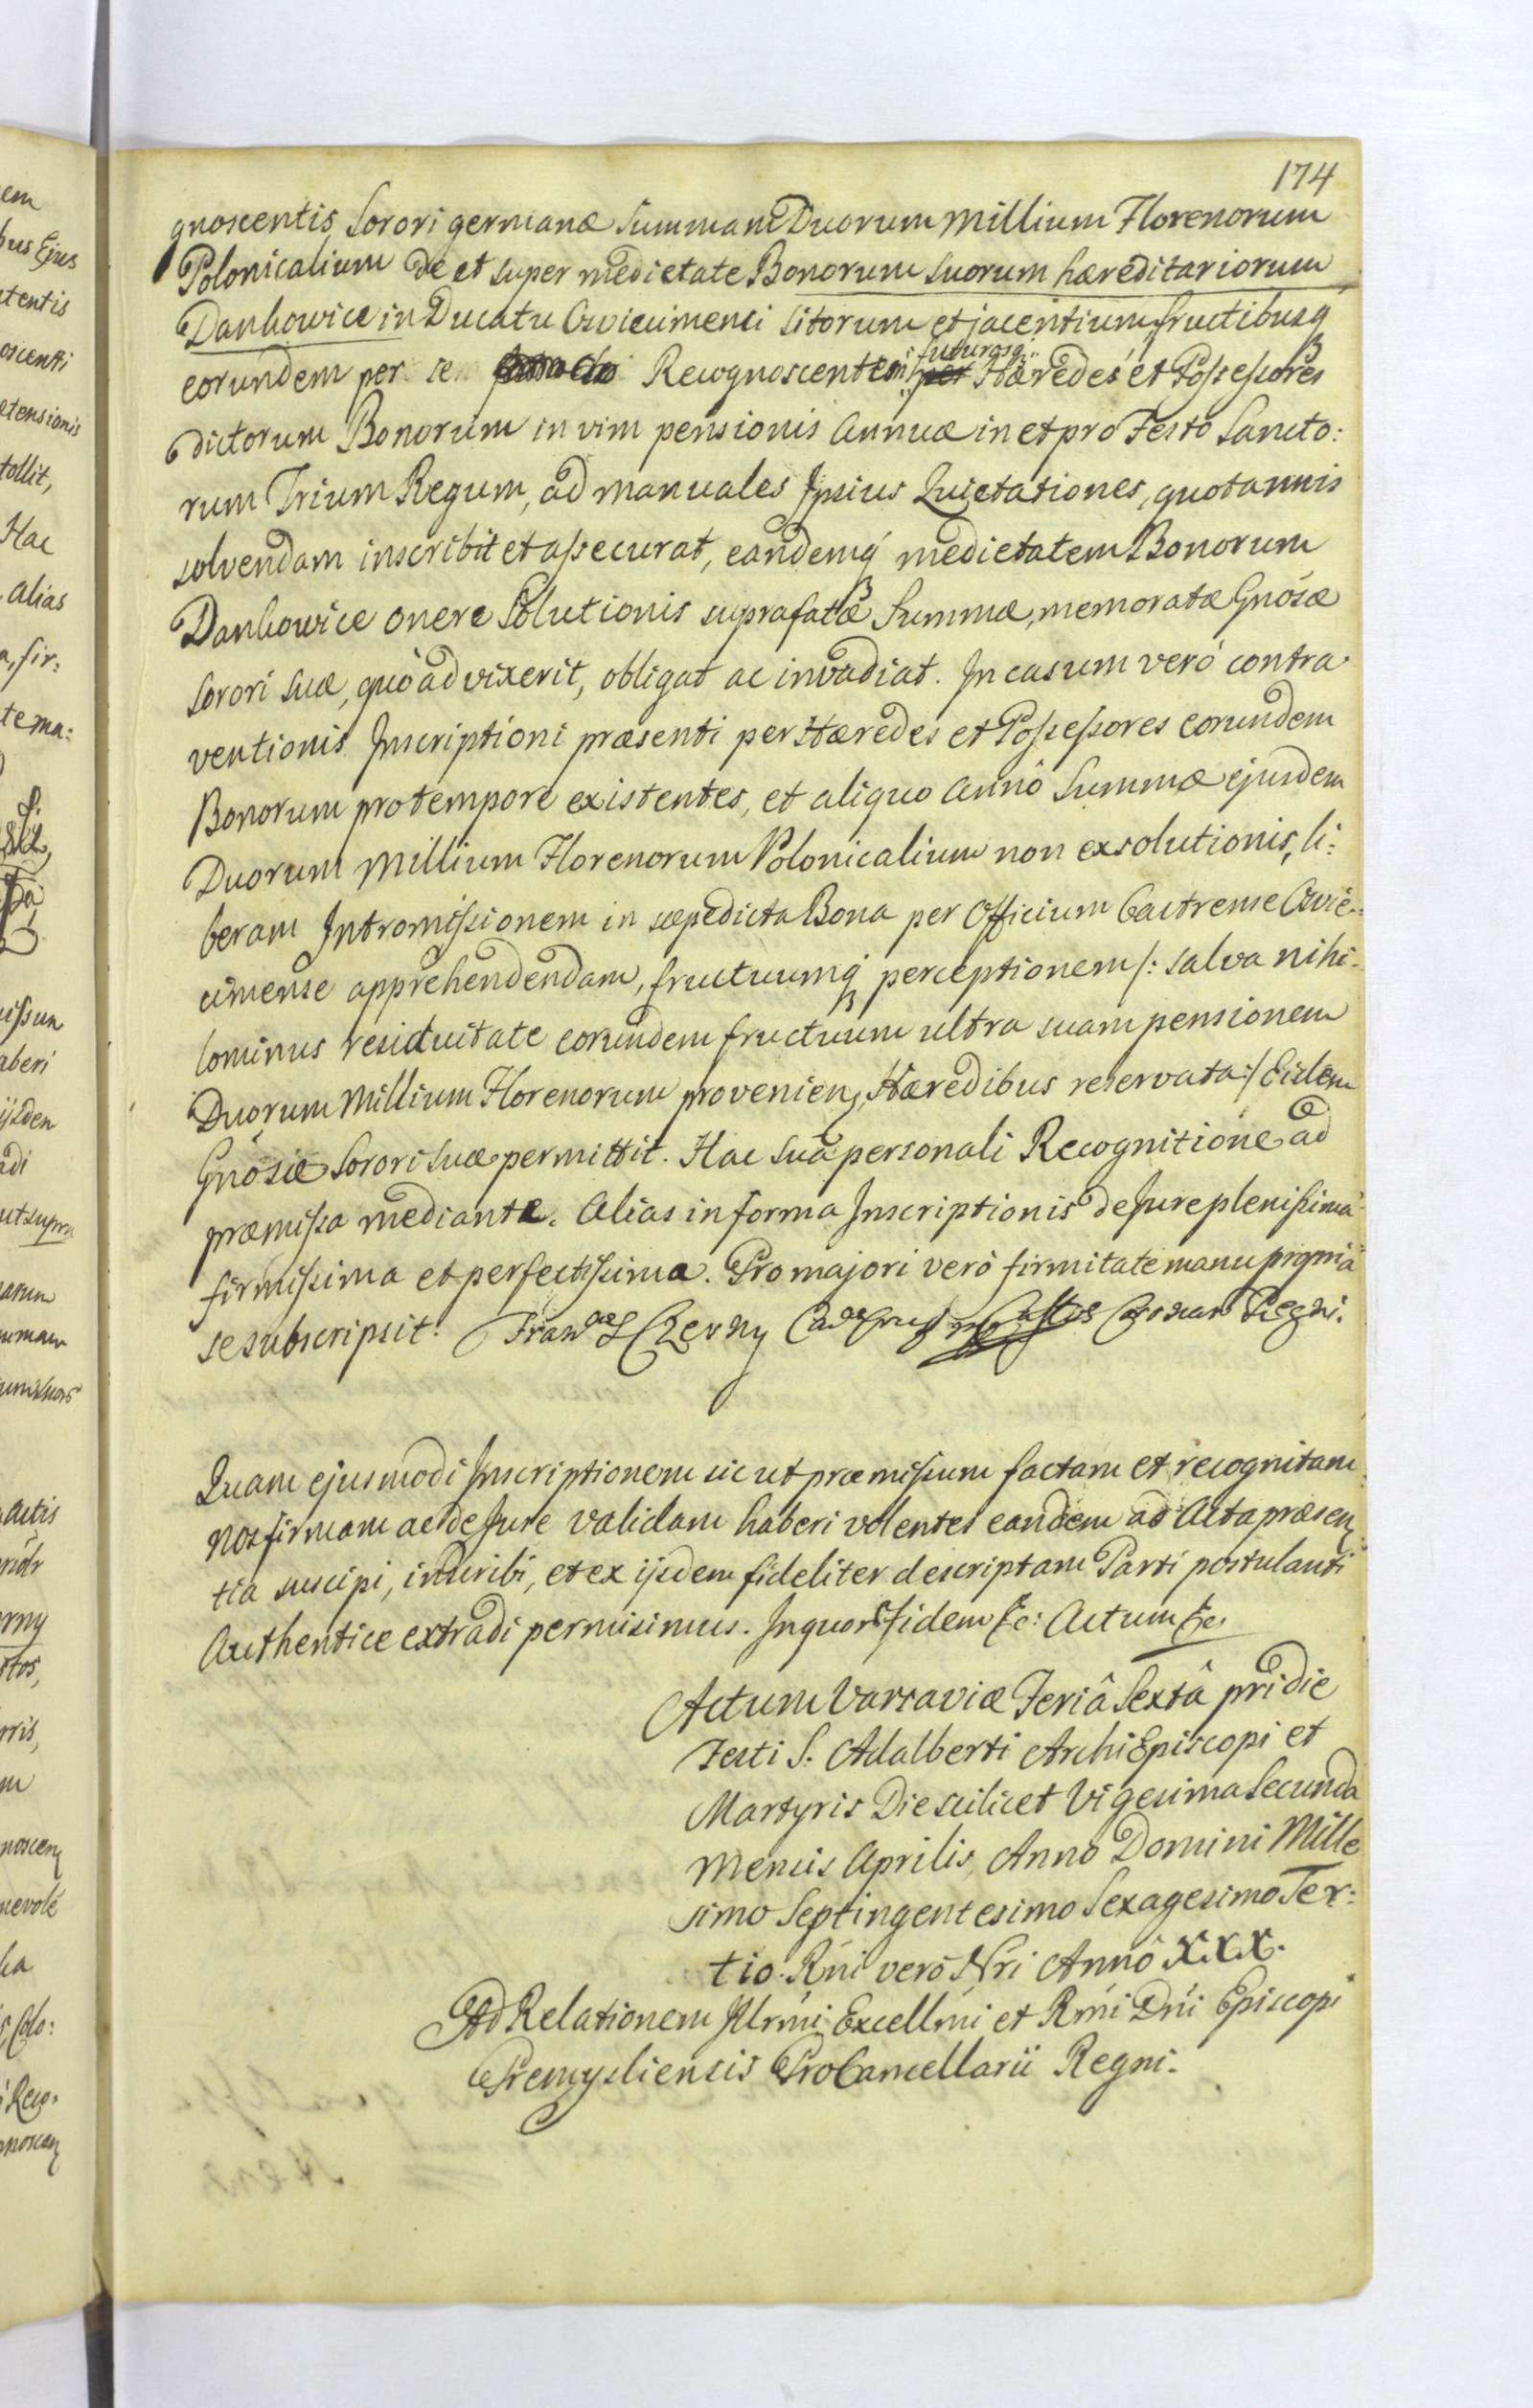 174
gnoscentis, Sorori germanæ Summam Duorum Millium Florenorum
Polonicalium de et super medietate Bonorum suorum hæreditariorum
Dankowice in Ducatu Oswiecimensi sitorum et jacentium, fructibusq
eorundem per se Recognoscentem futurosq Hæredes et Possessores
dictorum Bonorum in vim pensionis Annuæ in et pro Festo Sancto:
rum Trium Regum, ad manuales Ipsius Quietationes, quotannis
solvendam inscribit et assecurat, eandemq medietatem Bonorum
Dankowice onere Solutionis suprafatæ Summæ, memoratæ Gnosæ
Sorori suæ, quò ad vixerit, obligat ac invadiat. In casum verò contra
ventionis Inscriptioni præsenti per Hæredes et Possessores eorundem
Bonorum pro tempore existentes, et aliquo Annô Summæ ejusdem
Duorum Millium Florenorum Polonicalium non exsolutionis, li:
beram Intromissionem in sæpedicta Bona per Officium Castrense Oswie:
cimense apprehendendam, fructuumq perceptionem /: salva nihi:
lominus residuitate eorundem fructuum ultra suam pensionem
Duorum Millium Florenorum provenien, Hæredibus reservata :/ Eidem
Gnosæ Sorori suæ permittit. Hac suâ personali Recognitione ad
præmissa mediante. Alias in forma Inscriptionis de Jure plenissima
firmissima et perfectissima. Pro majori verò firmitate manu propria
se subscripsit. Czerny Regni.
Quam ejusmodi Inscriptionem sic ut præmissum factam et recognitam
nos firmam ac de Jure validam haberi volentes eandem ad Acta præsen
tia suscipi, inscribi, et ex ijsdem fideliter descriptam Parti postulanti
Authentice extradi permisimus. In quor fidem &c: Actum &c.
Actum Varsaviæ Feriâ Sextâ pridie
Festi S. Adalberti Archi Episcopi et
Martyris Die scilicet Vigesima Secunda
Mensis Aprilis, Anno Domini Mille
simo Septingentesimo Sexagesimo Ter:
tio. Rni verò Nri Annô XXX.
Ad Relationem Illrmi Excellmi et Rmi Dni Episcopi
Premysliensis ProCancellarii Regni.